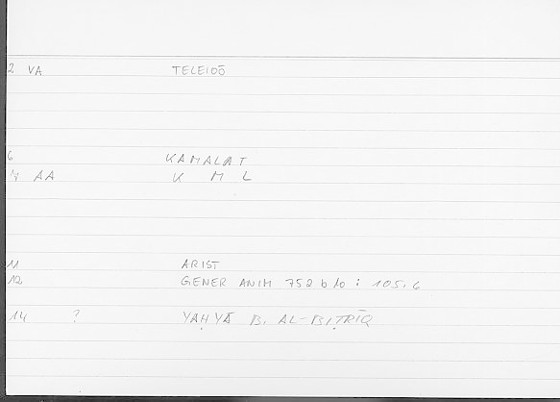 2 VA TELEIOŌ
6 KAMALAT
8 AA K M L
11 ARIST
12 GENER ANIM 752 b 10 : 105.6
14 ? YAḤYĀ B. AL-BIṬRĪQ